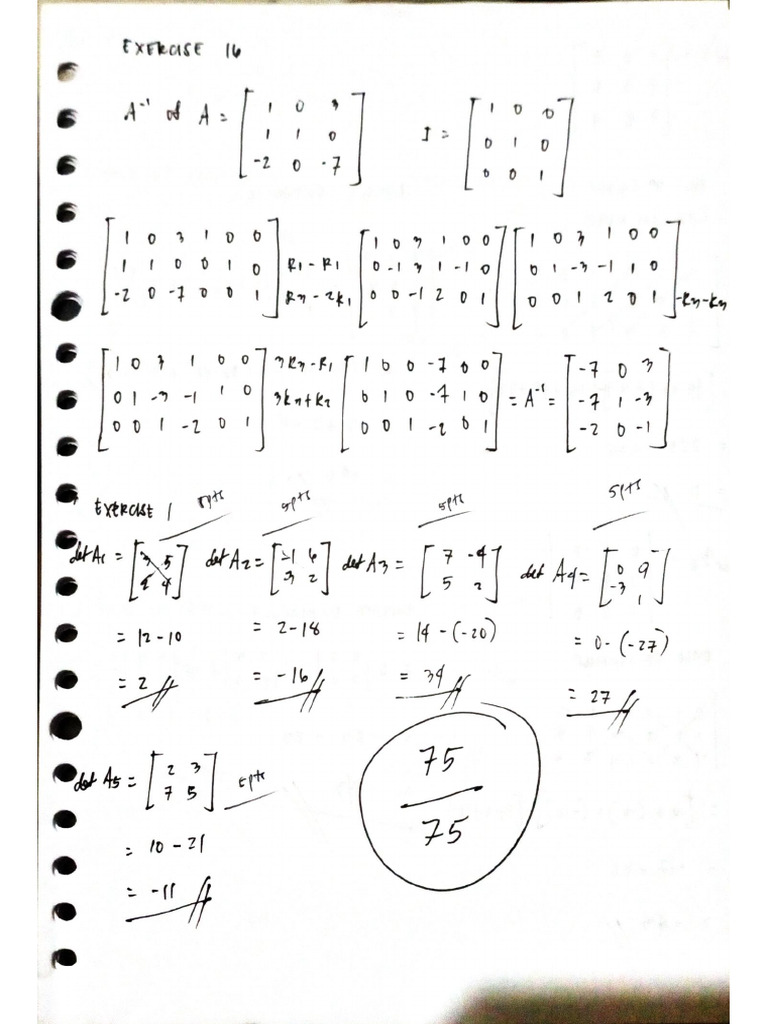 EXERCISE 16
A⁻¹ of A = [1 0 3; 1 1 0; -2 0 -7] I = [1 0 0; 0 1 0; 0 0 1]
[1 0 3 1 0 0; 1 1 0 0 1 0; -2 0 -7 0 0 1] R1 - R1 R3 - 2R1 [1 0 3 1 0 0; 0 -1 3 1 -1 0; 0 0 -1 2 0 1] [1 0 3 1 0 0; 0 1 -3 -1 1 0; 0 0 1 2 0 1] -R3 - R3
[1 0 3 1 0 0; 0 1 -3 -1 1 0; 0 0 1 -2 0 1] 3R3 - R1 3R3 + R2 [1 0 0 -7 0 0; 0 1 0 -7 1 0; 0 0 1 -2 0 1] = A⁻¹ = [-7 0 3; -7 1 -3; -2 0 -1]
EXERCISE 1 5pts 5pts 5pts 5pts
det A1 = [3 5; 2 4] det A2 = [-1 6; 3 2] det A3 = [7 -4; 5 2] det A4 = [0 9; -3 1]
= 12 - 10 = 2 - 18 = 14 - (-20) = 0 - (-27)
= 2 = -16 = 34 = 27
det A5 = [2 3; 7 5] 5pts
= 10 - 21
= -11
75
75